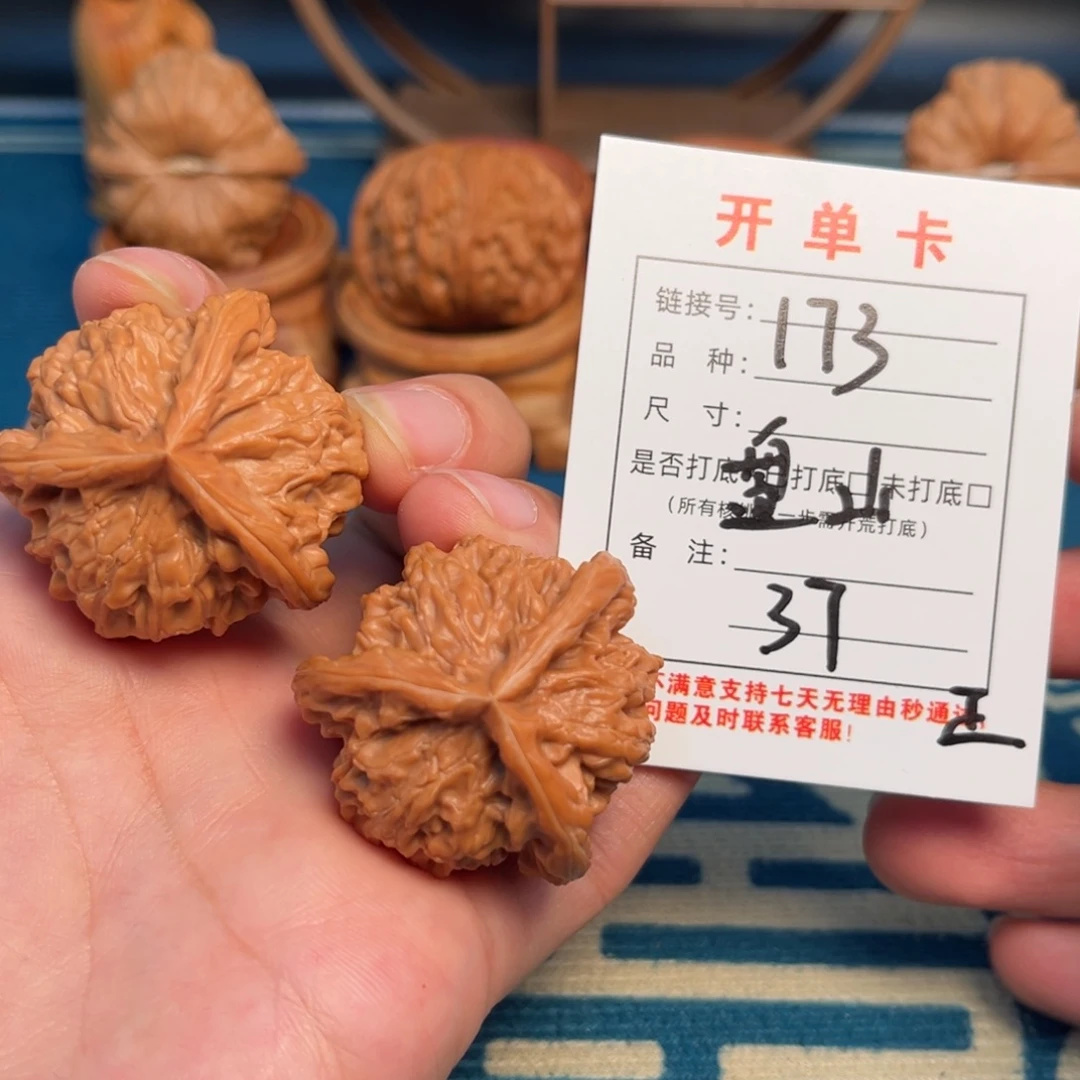 开单卡
链接号：173
品 种：
尺 寸：
是否打底 打底□未打底□
盘山
（所有核 一步需开荒打底）
备 注：
37
不满意支持七天无理由秒通过！
问题及时联系客服！
王